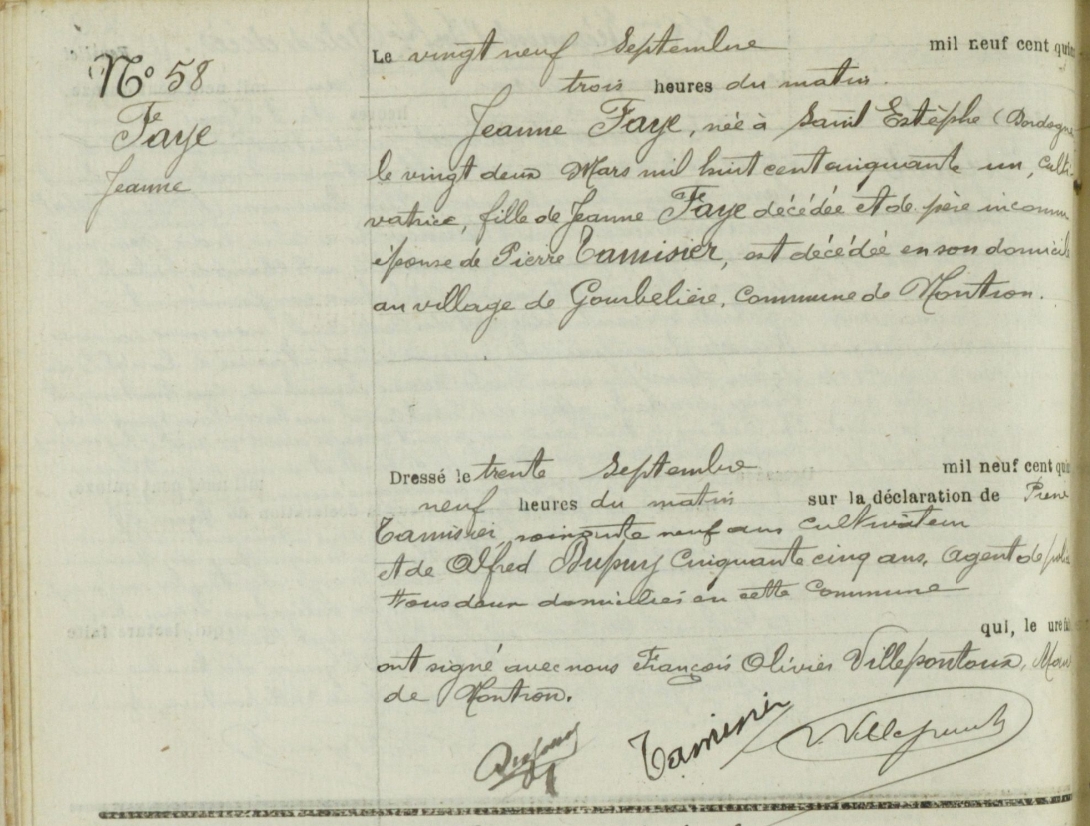 N° 58
Faye
Jeanne
Le vingt neuf Septembre mil neuf cent quin
trois heures du matin.
Jeanne Faye, née à Saint Estèphe (Dordogne
le vingt deux Mars mil huit cent cinquante un, culti-
vatrice, fille de Jeanne Faye décédée et de père inconnu
épouse de Pierre Tamisier, est décédée en son domicile
au village de Gourbelière, commune de Nontron.
Dressé le trente Septembre mil neuf cent quin
neuf heures du matin sur la déclaration de Pierre
Tamisier, soixante neuf ans cultivateur
et de Alfred Dupuy cinquante cinq ans, agent de police
tous deux domiciliés en cette Commune
qui, lecture fai
ont signé avec nous François Olivier Villepontoux, Maire
de Nontron.
Tamisier